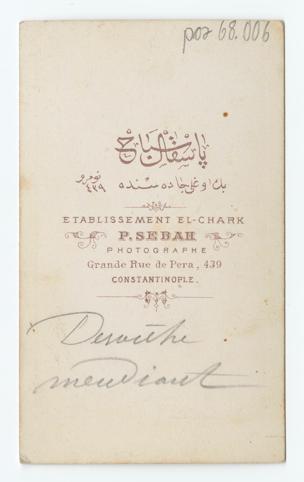 por 68.006
پاسقال صباح
بك اوغلى جاده سنده نومرو ٤٣٩
ETABLISSEMENT EL-CHARK
P. SEBAH
PHOTOGRAPHE
Grande Rue de Pera, 439
CONSTANTINOPLE.
Derviche
mendiant